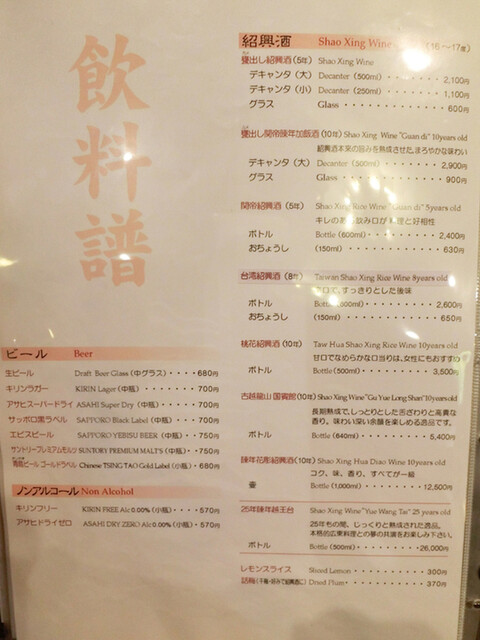 飲料譜
ビール Beer
生ビール Draft Beer Glass (中グラス)・・・・680円
キリンラガー KIRIN Lager (中瓶)・・・・・・・700円
アサヒスーパードライ ASAHI Super Dry (中瓶)・・・・・700円
サッポロ黒ラベル SAPPORO Black Label (中瓶)・・・700円
エビスビール SAPPORO YEBISU BEER (中瓶)・・750円
サントリープレミアムモルツ SUNTORY PREMIUM MALT'S (中瓶)・・750円
青島ビール ゴールドラベル Chinese TSING TAO Gold Label (小瓶)・680円
ノンアルコール Non Alcohol
キリンフリー KIRIN FREE Alc 0.00% (小瓶)・570円
アサヒドライゼロ ASAHI DRY ZERO Alc 0.00% (小瓶)・570円
紹興酒 Shao Xing Wine (16〜17度)
甕出し紹興酒 (5年) Shao Xing Wine
デキャンタ (大) Decanter (500ml)・・・・・・・・2,100円
デキャンタ (小) Decanter (250ml)・・・・・・・・1,100円
グラス Glass・・・・・・・・・・・・600円
甕出し関帝陳年加飯酒 (10年) Shao Xing Wine "Guan di" 10years old
紹興酒本来の旨みを熟成させた、まろやかな味わい
デキャンタ (大) Decanter (500ml)・・・・・・・・2,900円
グラス Glass・・・・・・・・・・・・900円
関帝紹興酒 (5年) Shao Xing Rice Wine "Guan di" 5years old
キレのある飲み口が料理と好相性
ボトル Bottle (600ml)・・・・・・・・・2,400円
おちょうし (150ml)・・・・・・・・・・・630円
台湾紹興酒 (8年) Taiwan Shao Xing Rice Wine 8years old
辛口で、すっきりとした後味
ボトル Bottle (600ml)・・・・・・・・・2,600円
おちょうし (150ml)・・・・・・・・・・・650円
桃花紹興酒 (10年) Taw Hua Shao Xing Rice Wine 10years old
甘口でなめらかな口当りは、女性にもおすすめ
ボトル Bottle (500ml)・・・・・・・・・3,500円
古越龍山 国賓館 (10年) Shao Xing Wine "Gu Yue Long Shan" 10years old
長期熟成で、しっとりとした舌ざわりと高貴な
香り。味わい深い余韻を楽しめる逸品です。
ボトル Bottle (640ml)・・・・・・・・・5,400円
陳年花彫紹興酒 (10年) Shao Xing Hua Diao Wine 10years old
コク、味、香り、すべてが一級
壷 Bottle (1,000ml)・・・・・・・・12,500円
25年陳年越王台 Shao Xing Wine "Yue Wang Tai" 25 years old
25年もの間、じっくりと熟成された逸品。
本格的広東料理との夢の共演をお楽しみ下さい。
ボトル Bottle (500ml)・・・・・・・・26,000円
レモンスライス Sliced Lemon・・・・・・・・・300円
話梅 (干梅・好みで紹興酒に) Dried Plum・・・・・・・・・370円